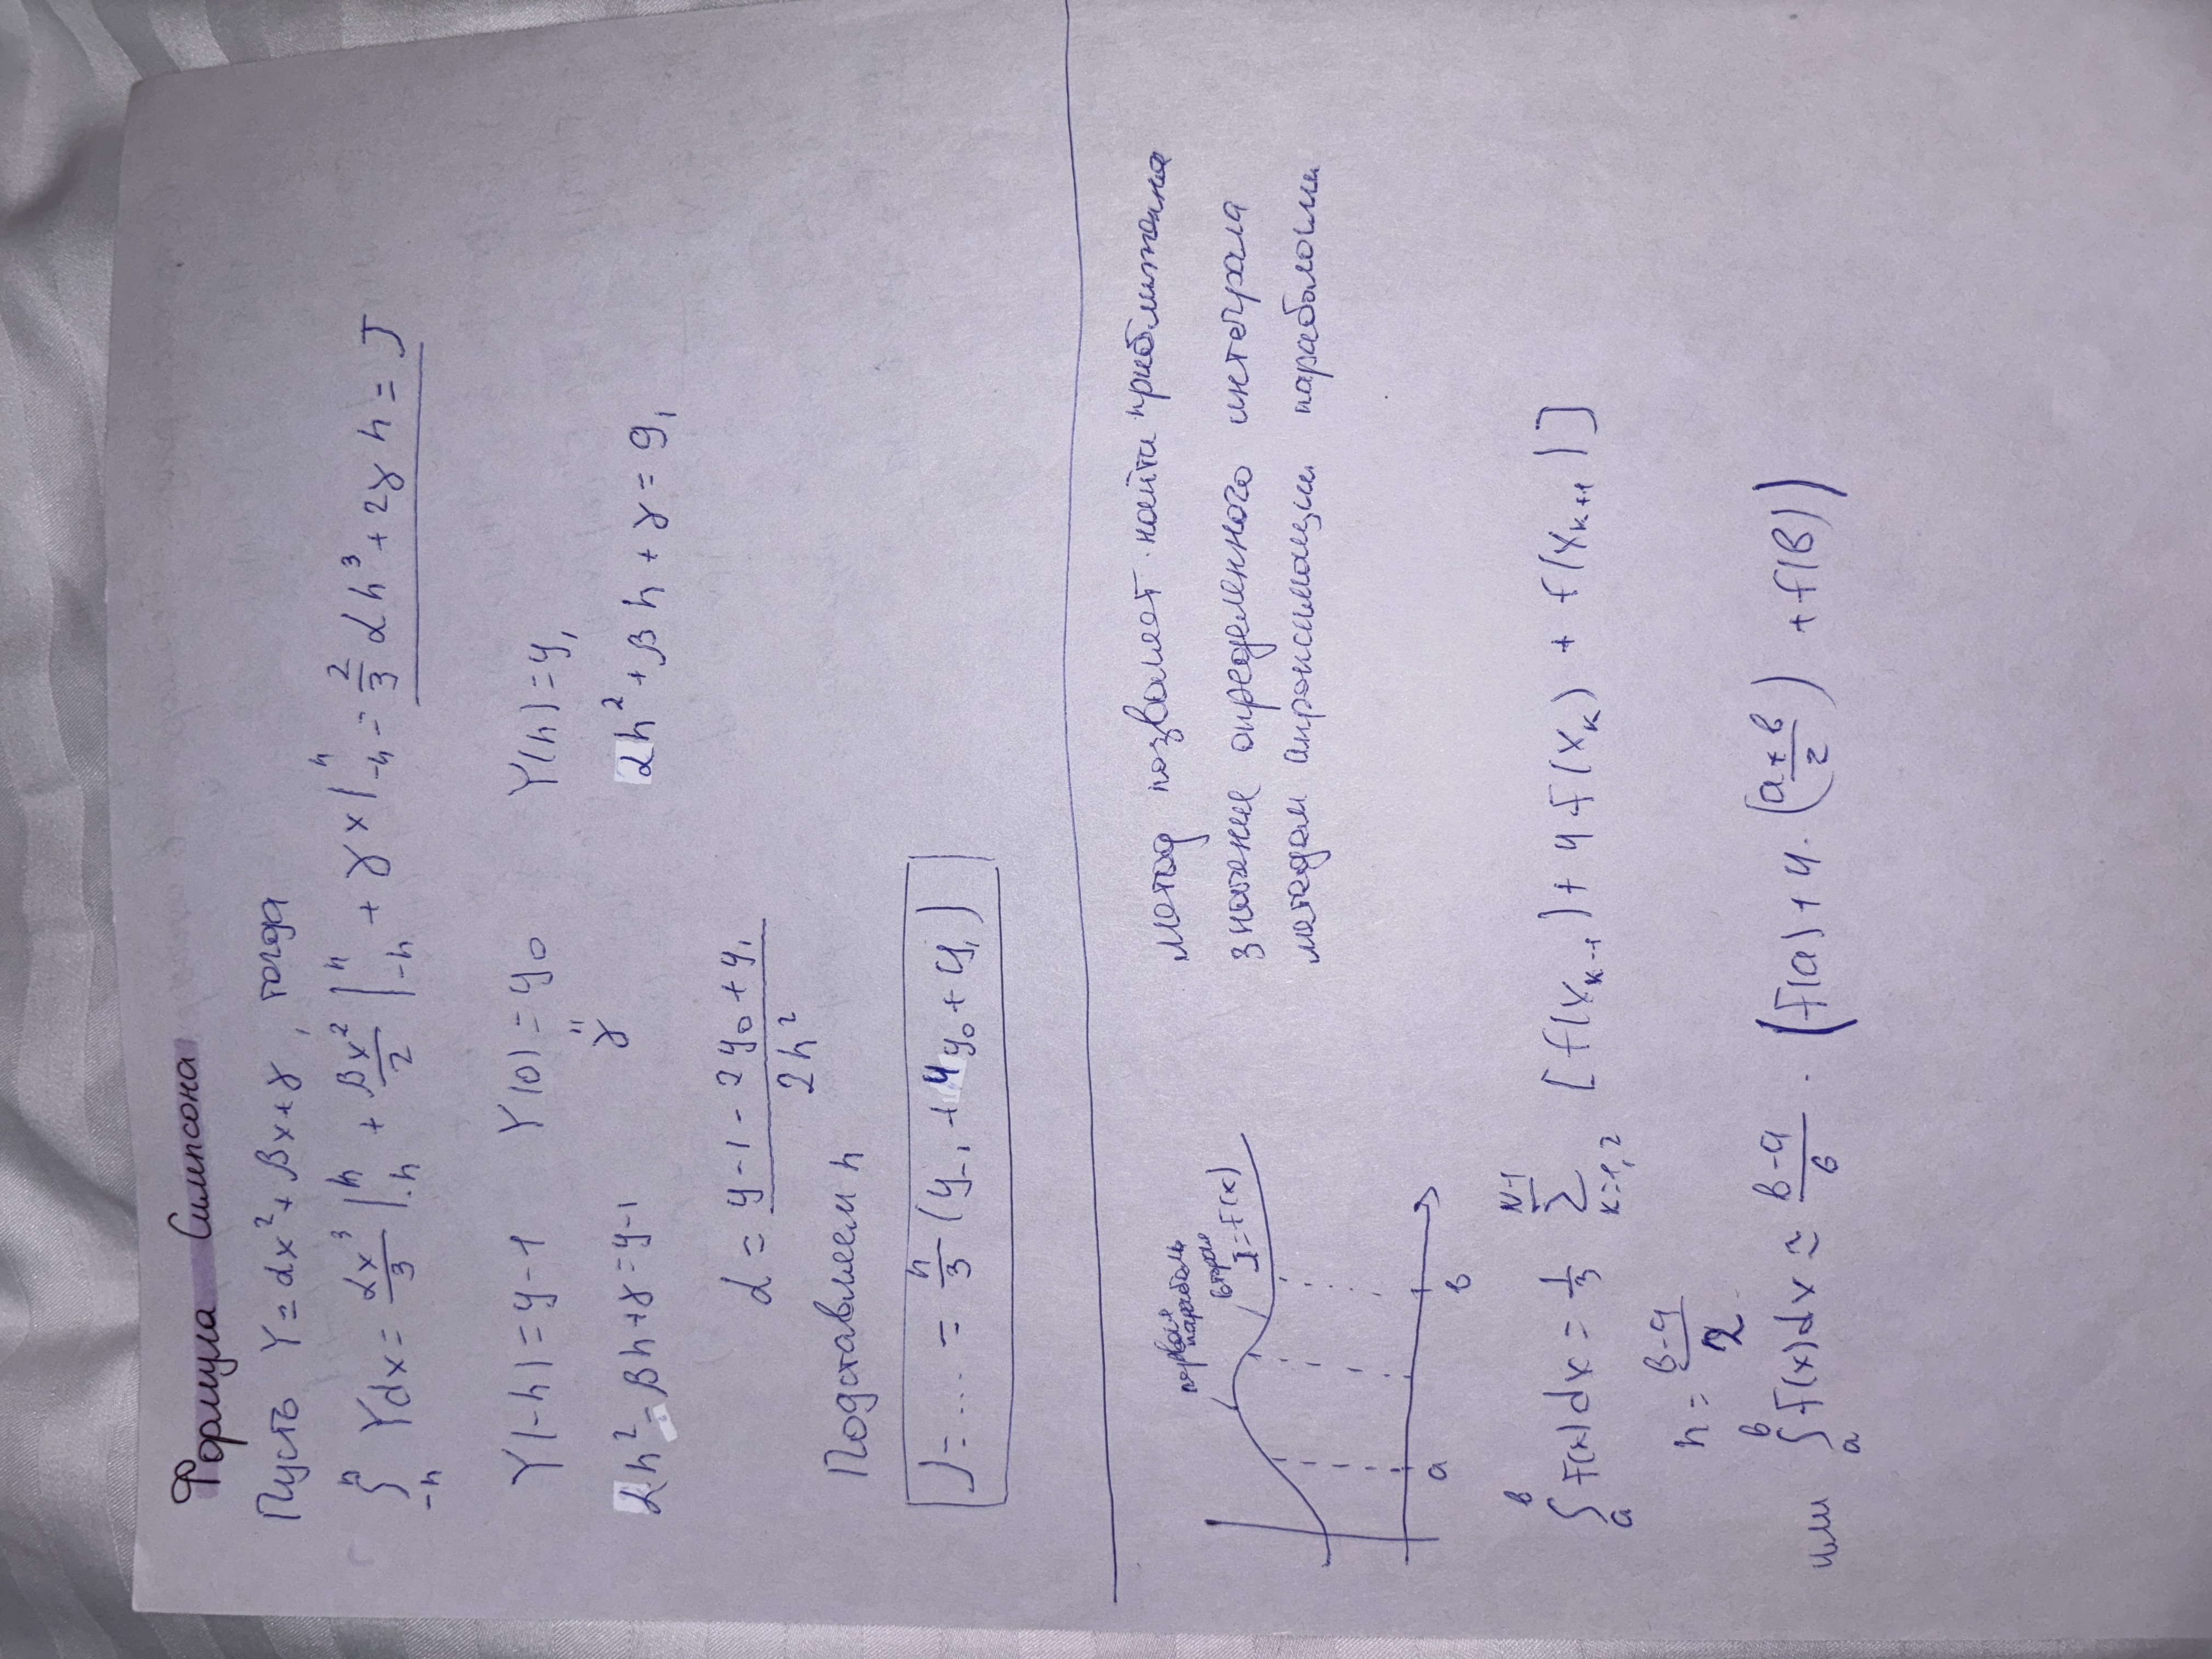 Формула Симпсона
Пусть Y = αx² + βx + γ, тогда
∫_{-h}^{h} Ydx = αx³/3 |_{-h}^{h} + βx²/2 |_{-h}^{h} + γx |_{-h}^{h} = 2/3 αh³ + 2γh = J
Y(-h) = y-1 Y(0) = y₀ Y(h) = y₁
" γ
αh² - βh + γ = y-1 αh² + βh + γ = y₁
α = (y-1 - 2y₀ + y₁) / 2h²
Подставляем h
J = ... = h/3 (y₋₁ + 4y₀ + y₁)
первая
парабола
вторая
y = f(x)
a
в
метод позволяет найти приближенное
значение определенного интеграла
методом апроксимации параболами
∫_{a}^{в} f(x)dx = 1/3 Σ_{k=1,2}^{N-1} [f(x_{k-1}) + 4f(x_k) + f(x_{k+1})]
h = (в-a)/2
или ∫_{a}^{в} f(x)dx ≃ (в-a)/6 · (f(a) + 4·((a+в)/2) + f(в))